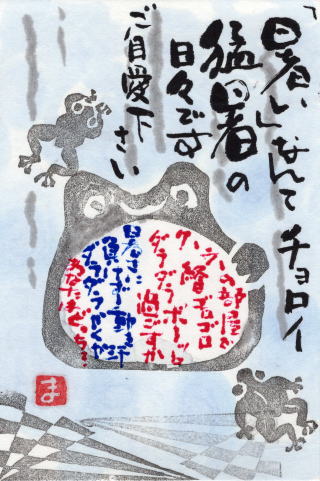 「暑い」なんてチョロイ
猛暑の
日々です
ご自愛下さい
クーラーの部屋で
ゴロゴロ
ダラダラ ボーッと
過ごすか
暑さに
負けず 動き
ダラダラ
あなたはどっち?
ま